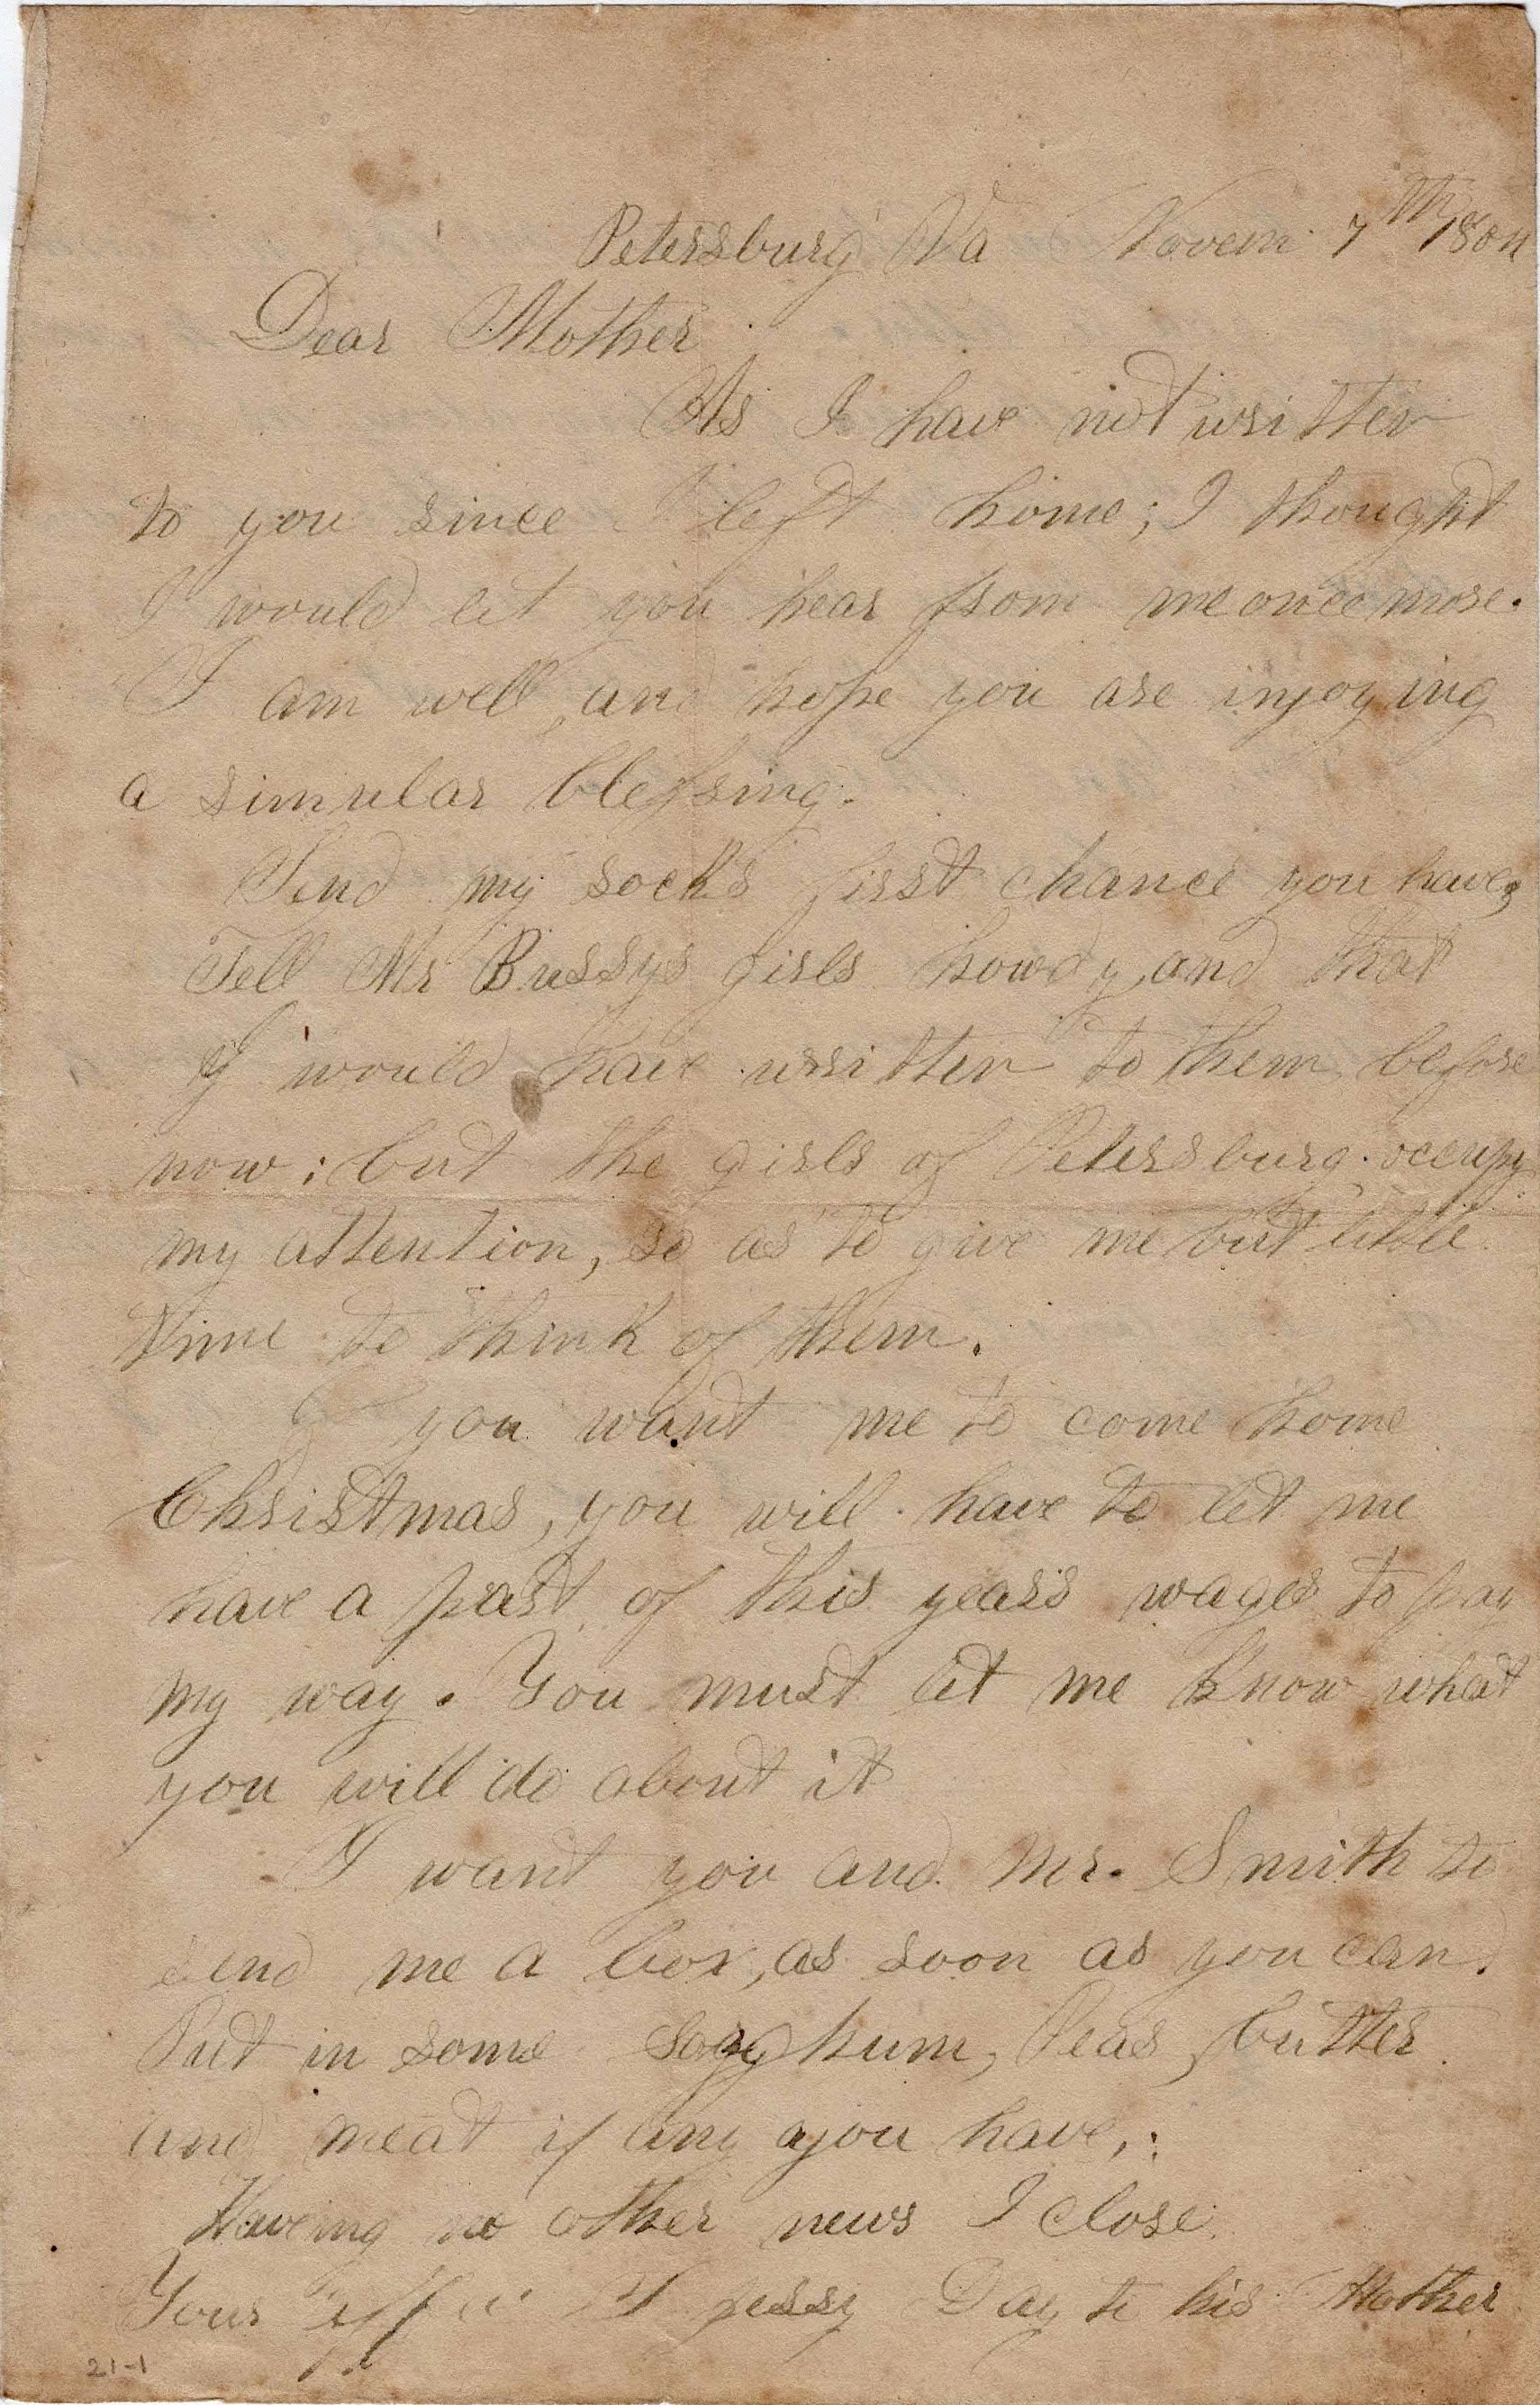 Petersburg Va Novem 7th
Dear Mother
As I have not written
to you since I left home; I thought
I would let you hear from me once more.
I am well, and hope you are injoying
a simular blessing.
Send my socks first chance you have,
Tell Mr Bussys girls howdy, and that
I would have written to them before
now; but the girls of Petersburg occupy
my attention, so as to give me but little
time to think of them.
you want me to come home
Christmas, you will have to let me
have a part of this years wages to pay
my way. You must let me know what
you will do about it
I want you and Mr. Smith to
send me a box, as soon as you can.
Put in some Sorghum, Peas, butter
and meat if any you have,.
Haveing no other news I close.
Your Day to his Mother
21-1